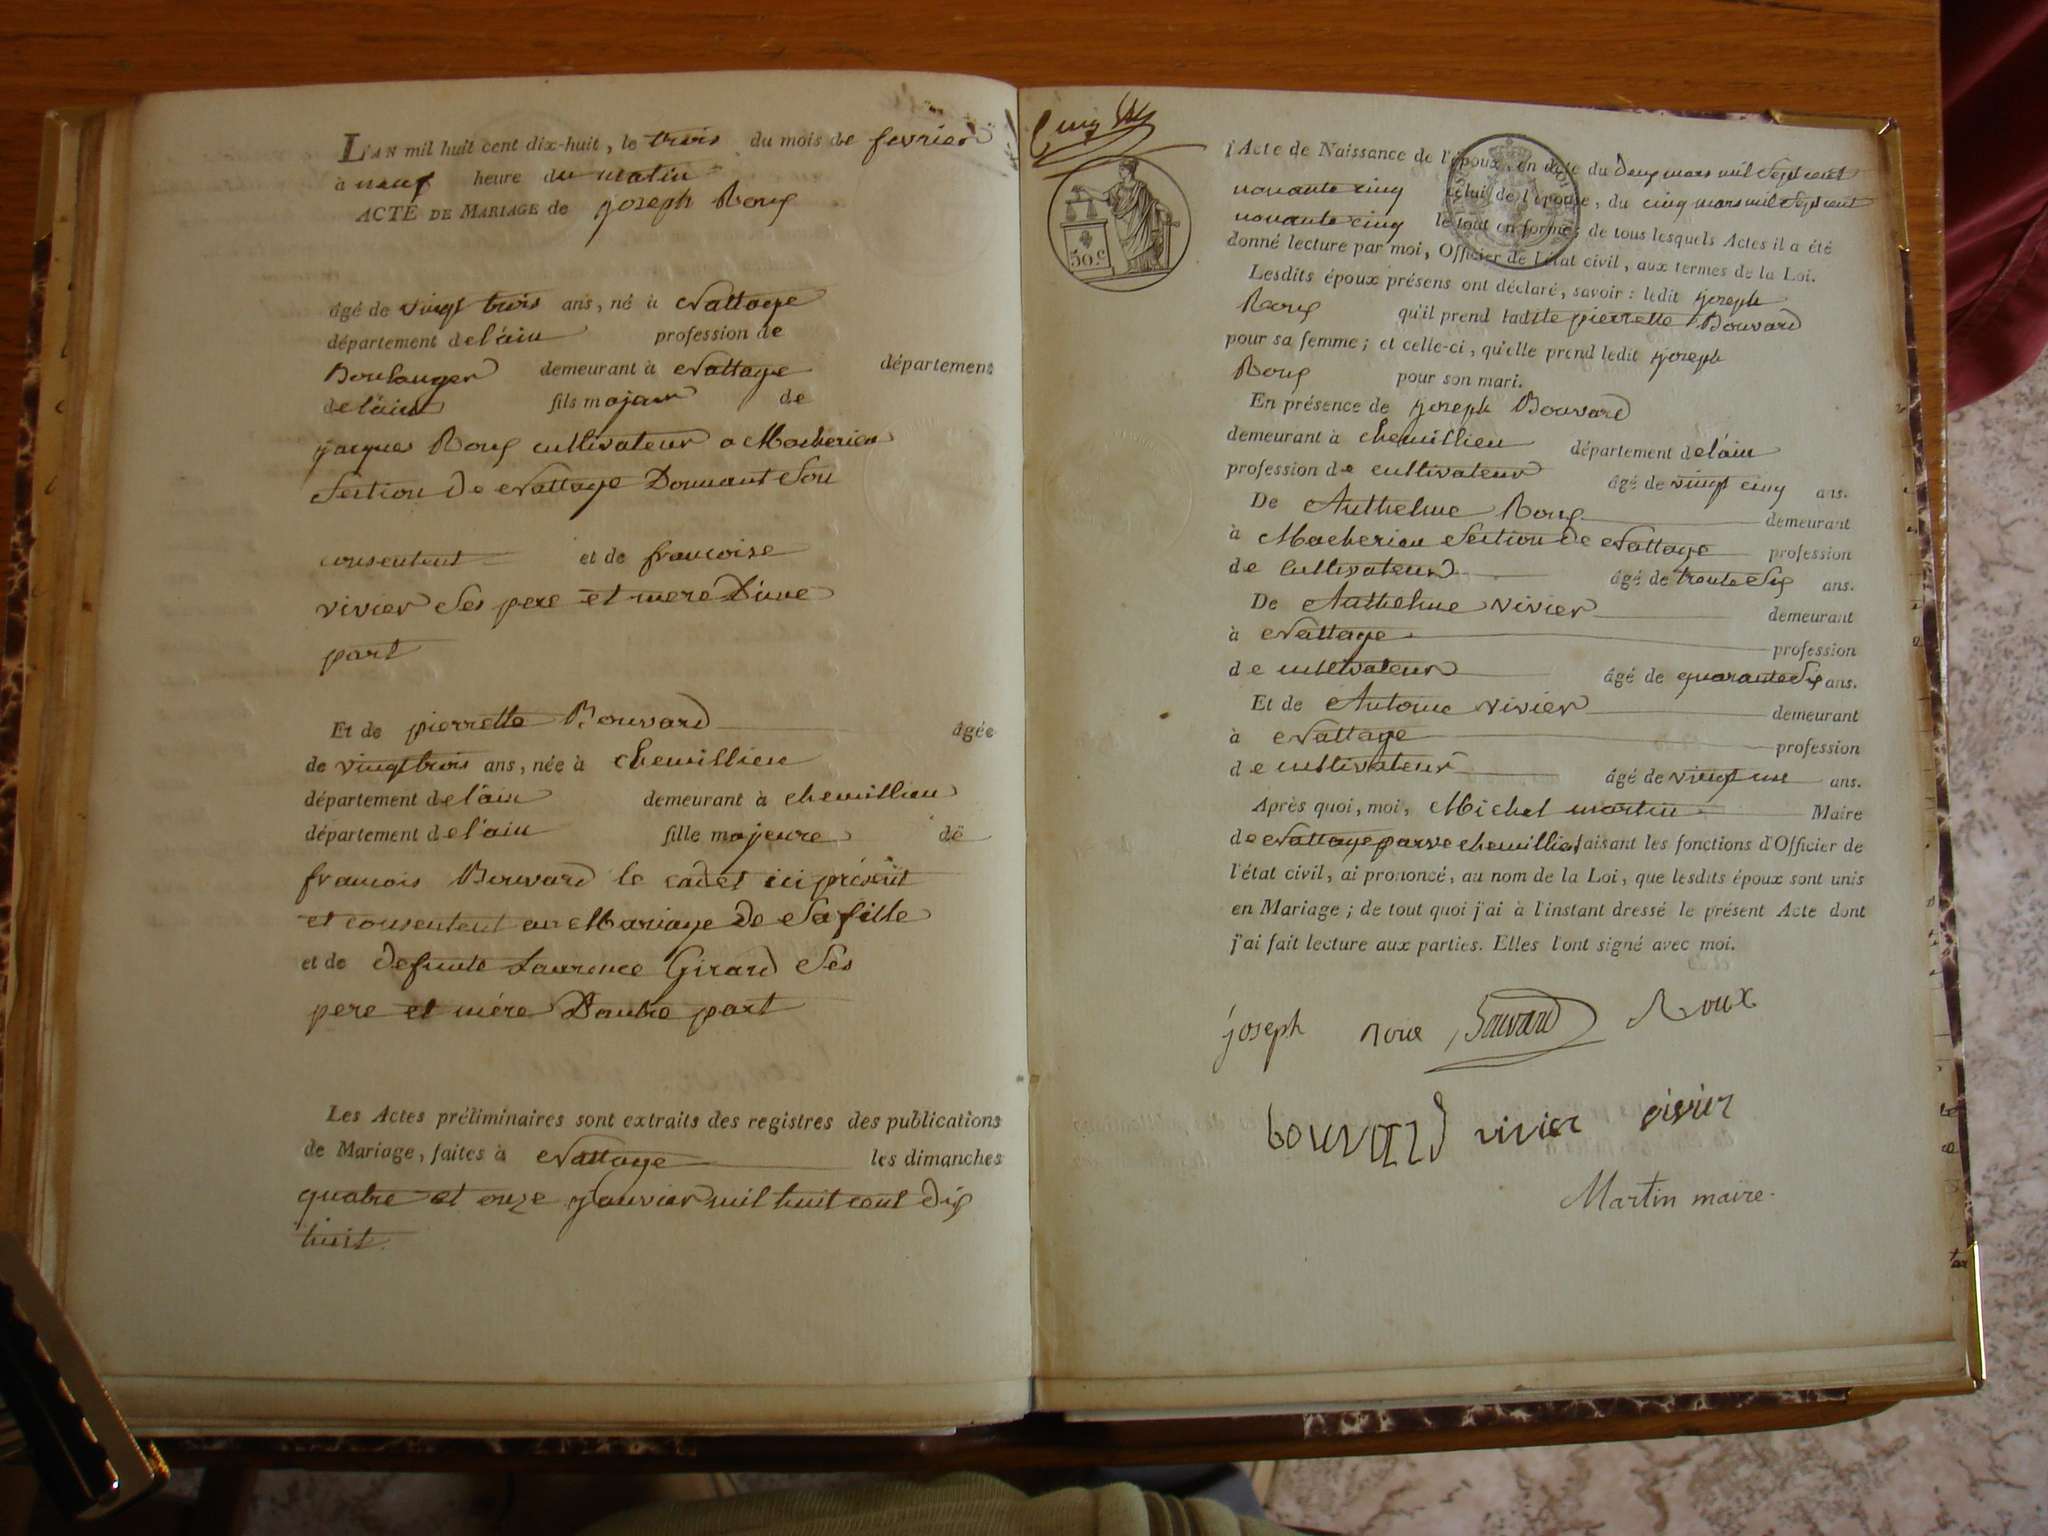 L'AN mil huit cent dix-huit, le trois du mois de fevrier
à neuf heure du matin
ACTE DE MARIAGE de joseph Roux
âgé de vingt trois ans, né à Nattage
département de l'ain profession de
Boulanger demeurant à Nattage département
de l'ain fils majeur de
jacques Roux cultivateur a Macherieu
Section de Nattage Donnant Son
consentent et de francoise
vivier Ses pere et mere D'une
part
Et de pierrette Bouvard âgée
de vingt trois ans, née à chemillieu
département de l'ain demeurant à chemillieu
département de l'ain fille majeure de
francois Bouvard le cadet ici présent
et consentent au Mariage de Sa fille
et de defunte Laurence Girard Ses
pere et mére D'autre part
Les Actes préliminaires sont extraits des registres des publications
de Mariage, faites à Nattage les dimanches
quatre et onze janvier mil huit cent dix
huit.
50.c
l'Acte de Naissance de l'époux, en date du Deux mars mil Sept cent
nonante cinq celui de l'épouse, du cinq mars mil Sept cent
nonante cinq le tout en forme; de tous lesquels Actes il a été
donné lecture par moi, Officier de l'état civil, aux termes de la Loi.
Lesdits époux présens ont déclaré, savoir: ledit joseph
Roux qu'il prend ladite pierrette Bouvard
pour sa femme; et celle-ci, qu'elle prend ledit joseph
Roux pour son mari.
En présence de joseph Bouvard
demeurant à chemillieu département de l'ain
profession de cultivateur âgé de vingt cinq ans.
De Anthelme Roux demeurant
à Macherieu Section de Nattage profession
de Cultivateur âgé de trente Six ans.
De Anthelme vivier demeurant
à Nattage profession
de cultivateur âgé de quarante Six ans.
Et de Antoine vivier demeurant
à Nattage profession
de cultivateur âgé de vingt un ans.
Après quoi, moi, Michel martin Maire
de Nattage parve chemillieu faisant les fonctions d'Officier de
l'état civil, ai prononcé, au nom de la Loi, que lesdits époux sont unis
en Mariage; de tout quoi j'ai à l'instant dressé le présent Acte dont
j'ai fait lecture aux parties. Elles l'ont signé avec moi.
joseph roux Bouvard Roux
bouvard vivier vivier
Martin maire.